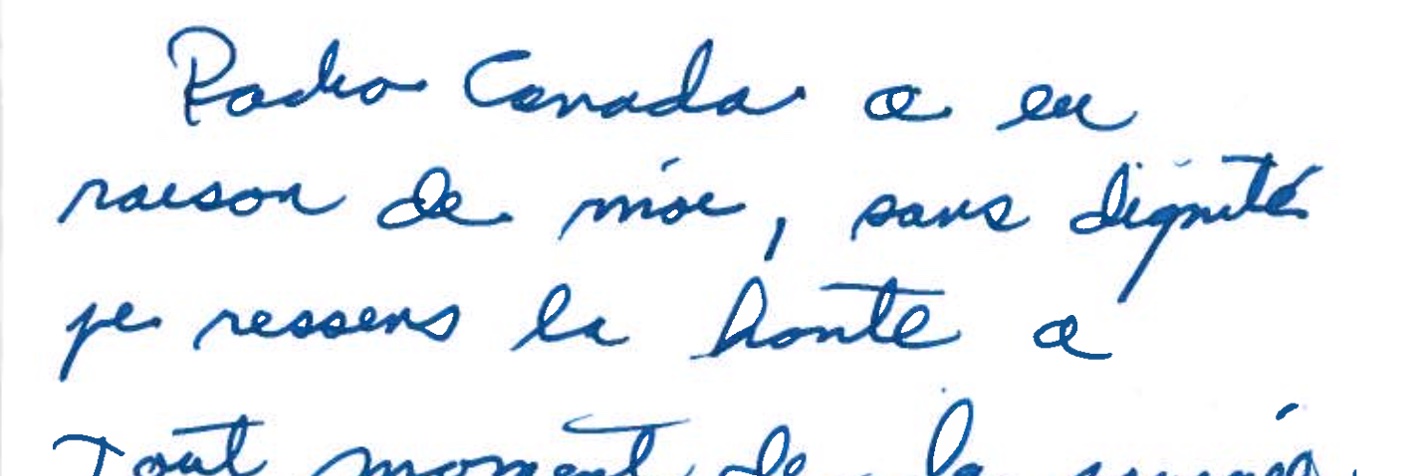 Radio Canada a eu
raison de moi, sans dignité
je ressens la honte a
Tout moment de la